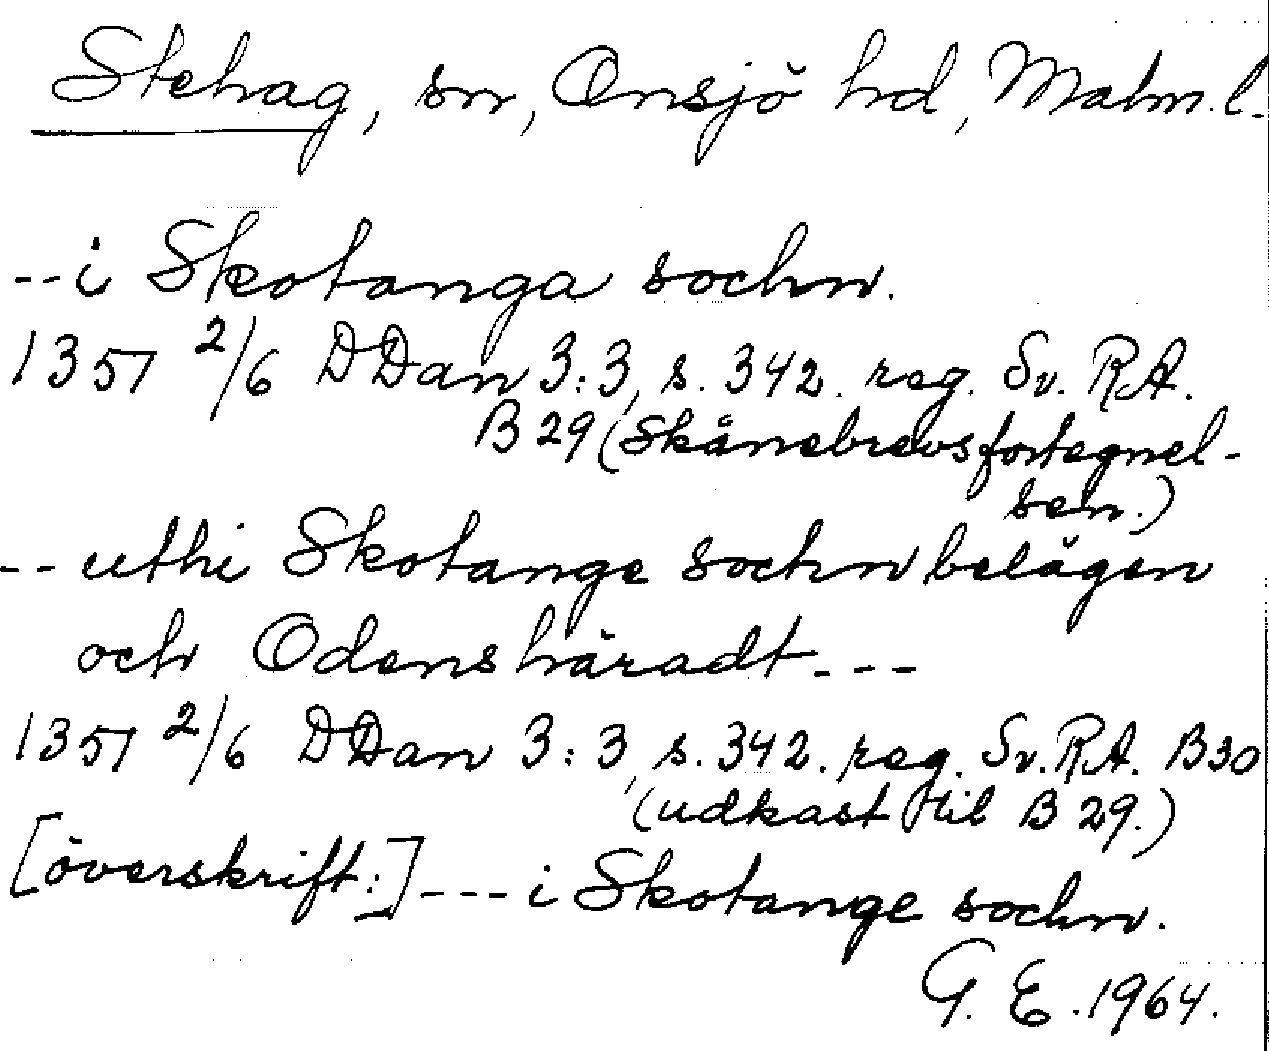 Stehag, sn, Onsjö hd, Malm. l.
--i Skotanga sochn.
1357 2/6 DDan 3:3, s. 342. reg. Sv. RA.
B 29 (Skånebrevsfortegnel-
sen.)
-- uthi Skotange sochn belägen
och Odenshäradt ---
1357 2/6 DDan 3:3, s. 342. reg. Sv. RA. B30
(udkast til B 29.)
[överskrift:] --- i Skotange sochn.
G. E. 1964.